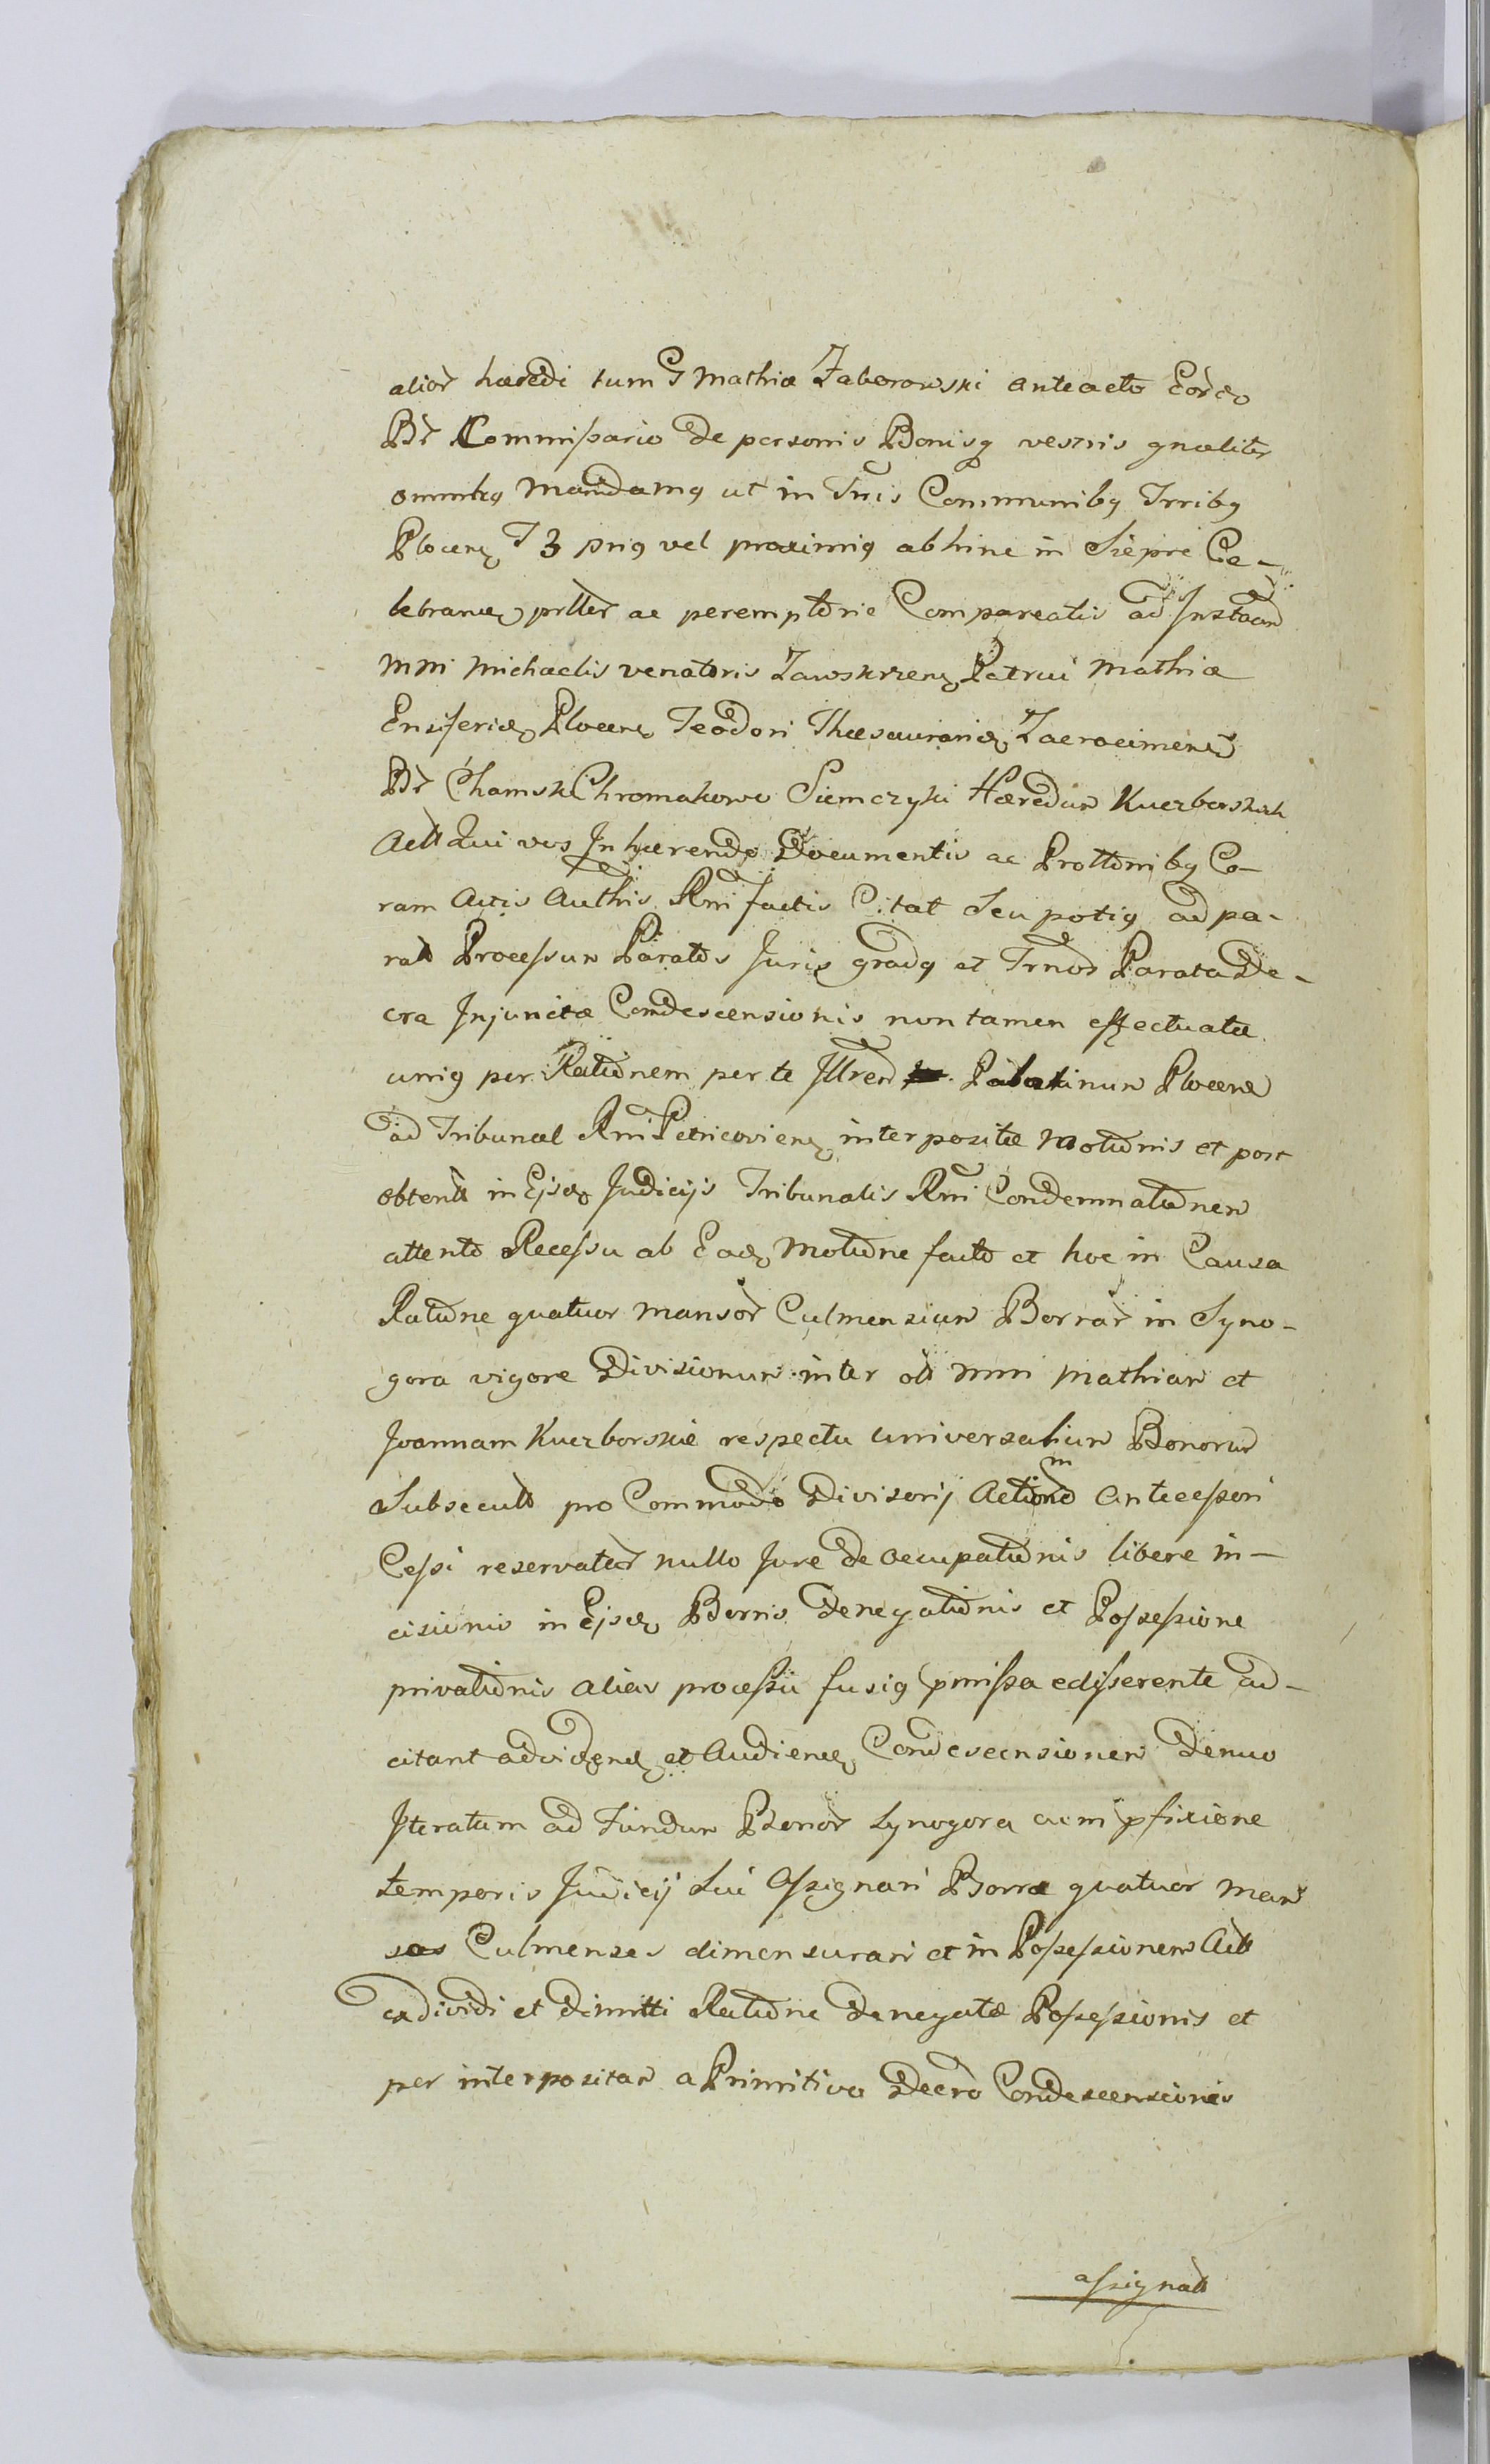 alior haeredi tum G Mathiae Zaborowski anteacto Eorde
Br Commissario de personis Bonisq vestris gnaliter
omnibq Mandamq ut in Tris Communibq Trribq
Plocens T 3 pnis vel proximiq abhinc in Sieprc Ce-
lebrand pntter ac peremptorie Compareatis ad Instaan
Mni Michaelis venatoris Zawskrzens Patrui Mathiae
Ensiferid Plocens Teodori Thesaurarid Zacrocimens
Br Chamsk Chromakowo Siemczyki Haeredum Kuczborskich
Act Qui vos Inhaerendo Documentis ac Prottonibq Co-
ram Actis Authis Rni factis Citat Seu potiq ad pa-
rat Processum Paratos Juris gradq et Trnos Parata De-
cra Injunctae Condescensionis non tamen effectuatae
uniq per Rationem per te Illren Palatinum Plocens
ad Tribunal Rni Petricoviens interpositae Motionis et post
obtent in Ejsd Judicijs Tribunalis Rni Condemnationem
attento Recessu ab Ead Motione facto et hoc in Causa
Ratione quatuor Mansor Culmensium Borrar in Syno-
gora vigore Divisionum inter ol Mni Mathiam et
Joannam Kuczborskie respectu universalium Bonorum
Subsecut pro Commodo Divisorij Actionm Antecessori
Cessi reservatar nullo Jure De Occupationis libere in-
cisionis in Ejsd Borris Denegationis et Possessione
privationis alias processu fusiq pmissa edisserente ad-
citant advidend et Audiend Condescensionem Denuo
Iteratam ad Fundum Bonor Synogora cum pfixione
temporis Judicij Sui Assignari Borrae quatuor Man
sos Culmenses dimensurari et in Possessionem Act
exdividi et Dimitti Ratione Denegatae Possessionis et
per interpositam a Primitivo Decro Condescensionis
assignat